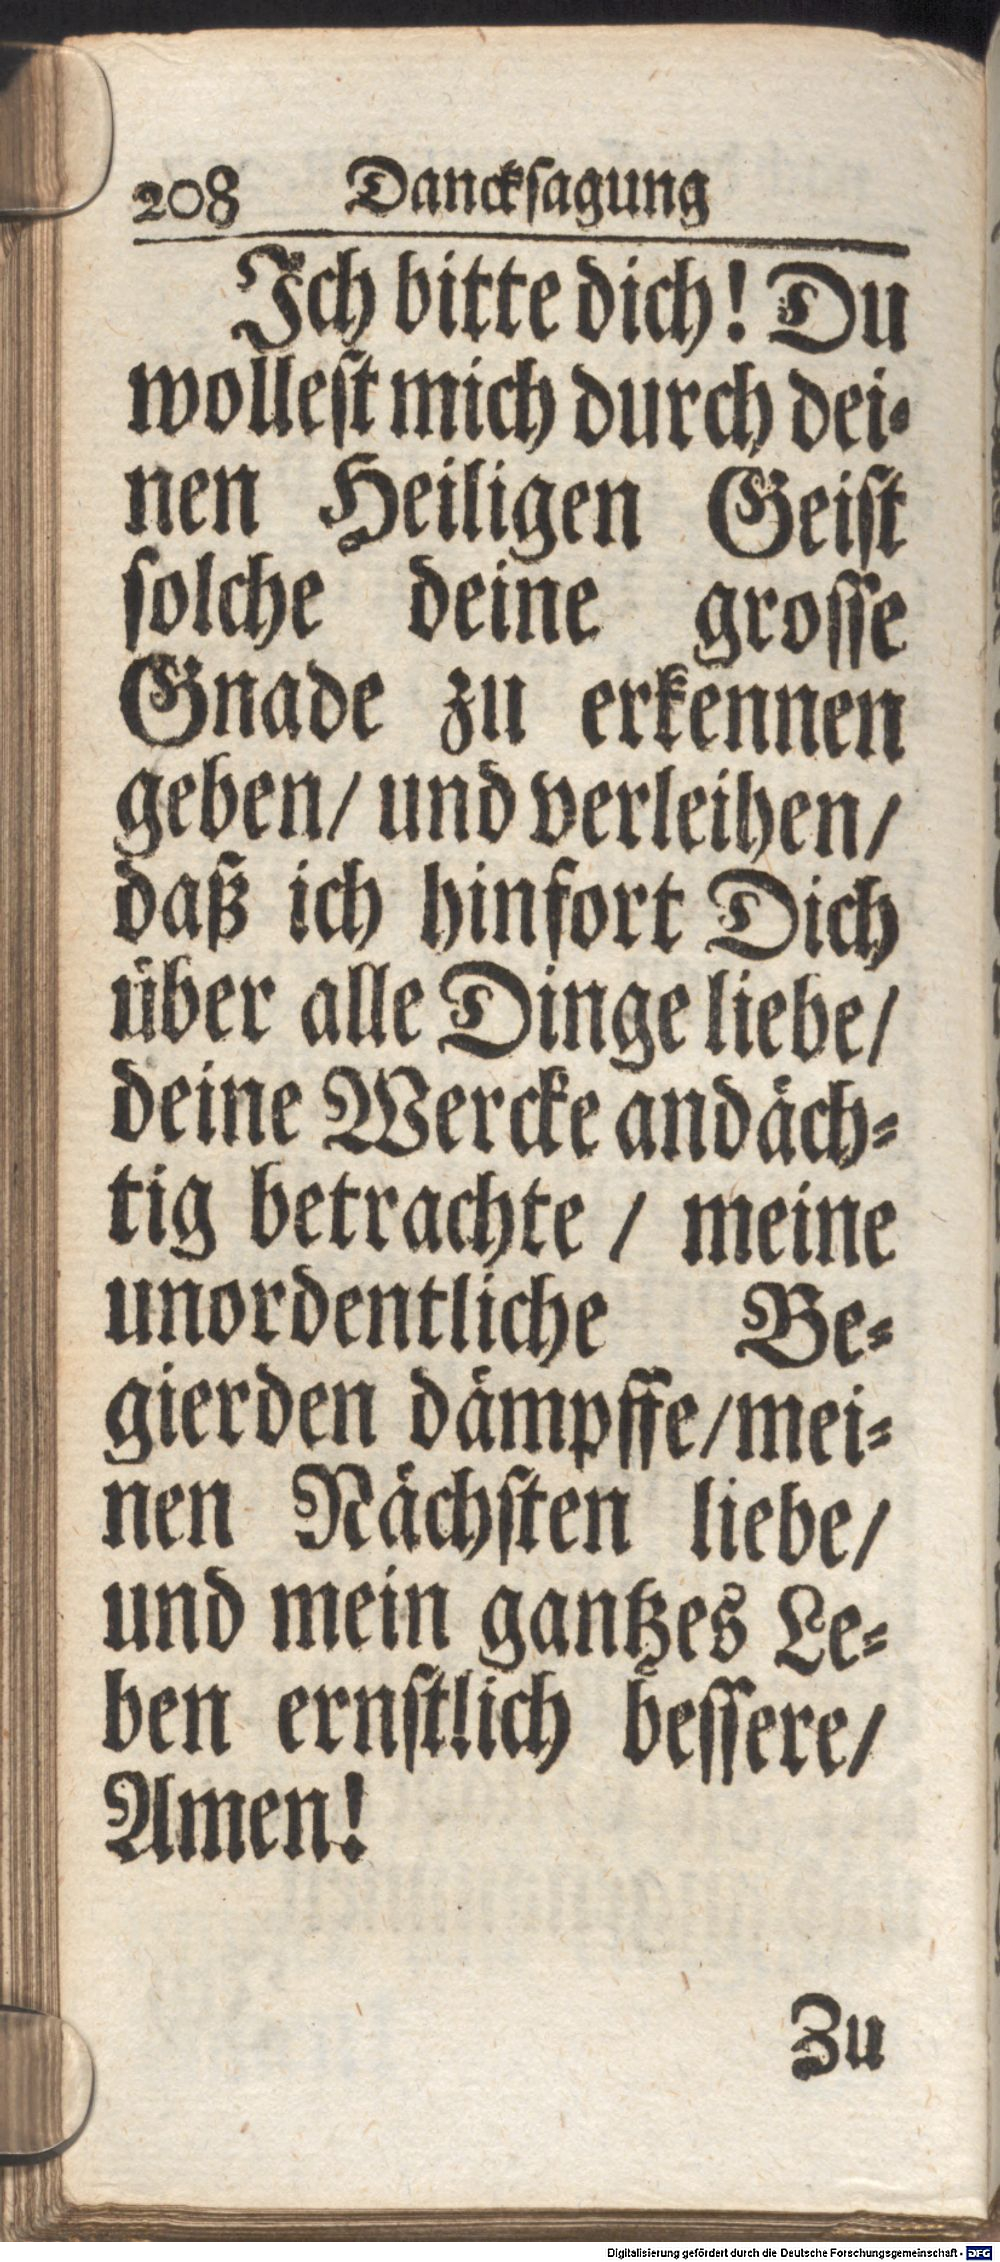 208 Danckſagung
Ich bitte dich! Du
wolleſt mich durch dei⸗
nen Heiligen Geiſt
ſolche deine groſſe
Gnade zu erkennen
geben/ und verleihen/
daß ich hinfort Dich
uͤber alle Dinge liebe/
deine Wercke andaͤch⸗
tig betrachte / meine
unordentliche Be⸗
gierden daͤmpffe/mei⸗
nen Naͤchſten liebe/
und mein gantzes Le⸗
ben ernſtlich beſſere/
Amen!
Zu
Digitalisierung gefördert durch die Deutsche Forschungsgemeinschaft - DFG